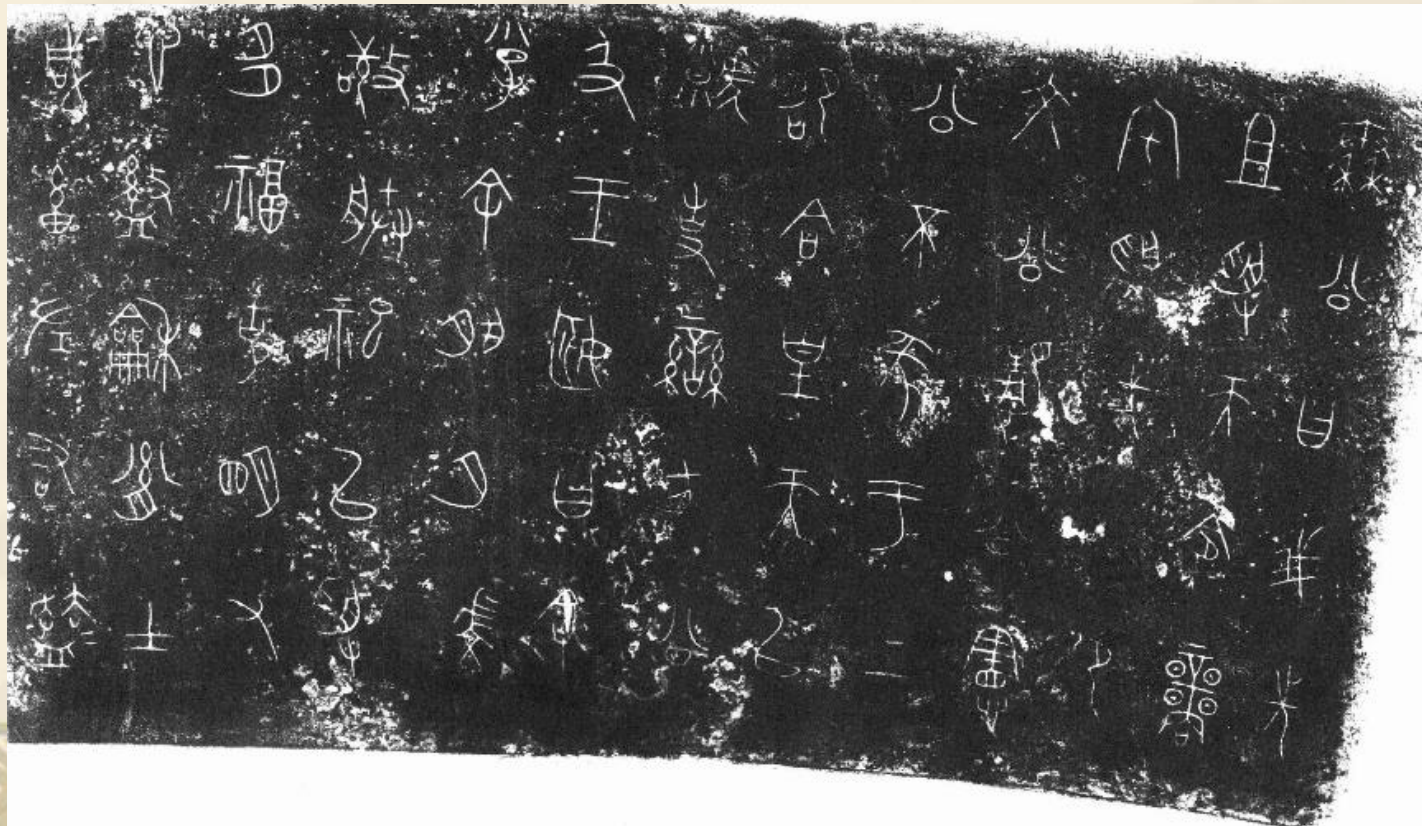 秦公曰我先
且受天令商
宅受或剌剌卲
文公靜公憲
公不彖于上
卲合皇天以
虩事蠻方公
及王姬曰余
小子余夙夕虔
敬朕祀以受
多福克明又
心盭龢胤士
咸畜左右趩